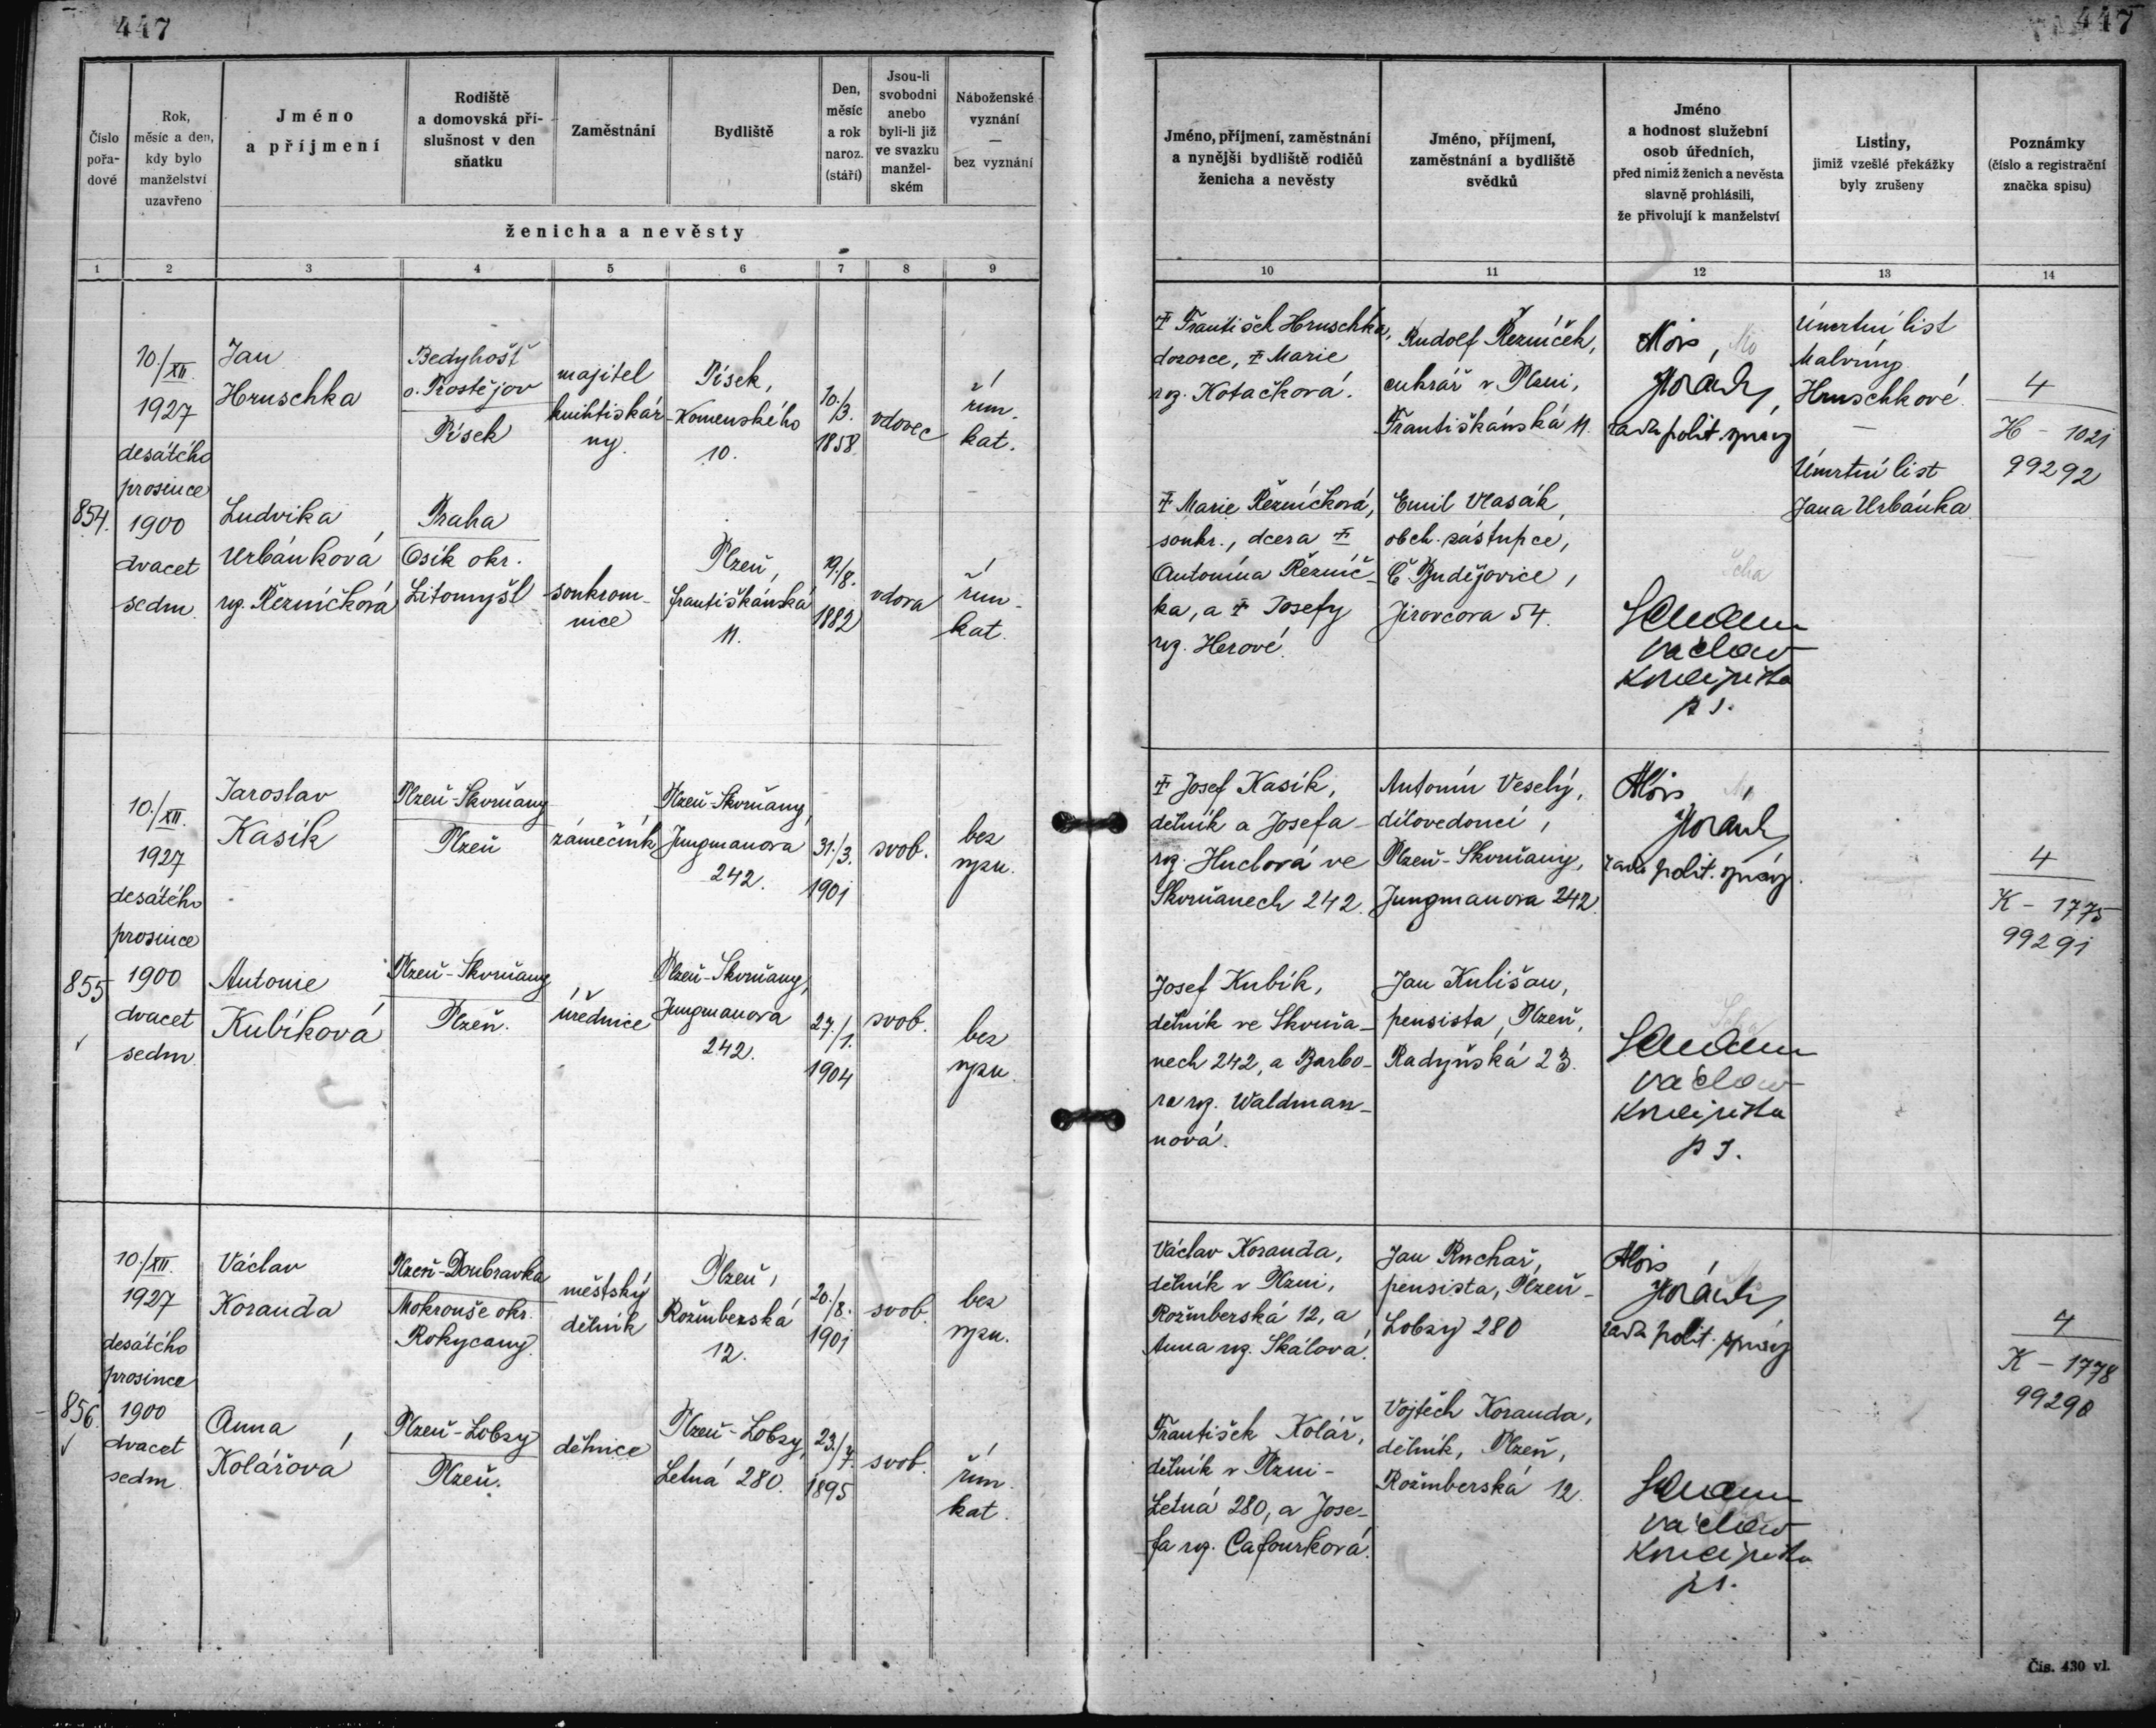 447
447
Číslo
pořa-
dové
Rok,
měsíc a den,
kdy bylo
manželství
uzavřeno
Jméno
a příjmení
Rodiště
a domovská pří-
slušnost v den
sňatku
Zaměstnání
Bydliště
Den,
měsíc
a rok
naroz.
(stáří)
Jsou-li
svobodni
anebo
byli-li již
ve svazku
manžel-
ském
Náboženské
vyznání
—
bez vyznání
ženicha a nevěsty
Jméno, příjmení, zaměstnání
a nynější bydliště rodičů
ženicha a nevěsty
Jméno, příjmení,
zaměstnání a bydliště
svědků
Jméno
a hodnost služební
osob úředních,
před nimiž ženich a nevěsta
slavně prohlásili,
že přivolují k manželství
Listiny,
jimiž vzešlé překážky
byly zrušeny
Poznámky
(číslo a registrační
značka spisu)
1 2 3 4 5 6 7 8 9 10 11 12 13 14
854.
10./XII.
1927
desátého
prosince
1900
dvacet
sedm
Jan
Hruschka
Bedyhošť
o. Prostějov
Písek
majitel
knihtiskár
ny.
Písek,
Komenského
10.
10./3.
1858.
vdovec
řím.
kat.
Ludvika
Urbánková
roz. Řezníčková
Praha
Osík okr.
Litomyšl
soukrom-
nice
Plzeň,
františkánská
11.
19./8.
1882
vdova
řím.
kat.
† František Hruschka,
dozorce, † Marie
roz. Kotačková.
Rudolf Řezníček,
cukrář v Plzni,
Františkánská 11.
Alois
Horák
rada polit. správy
Úmrtní list
Malvíny
Hruschkové.
—
Úmrtní list
Jana Urbánka
4
H - 1021
99292
† Marie Řezníčková,
soukr., dcera †
Antonína Řezníč-
ka, a † Josefy
roz. Herové.
Emil Vlasák,
obch. zástupce,
Č Budějovice,
Jirovcova 54.
Václav
koncipista
p s.
855
10./XII.
1927
desátého
prosince
1900
dvacet
sedm
Jaroslav
Kasík
Plzeň-Skvrňany
Plzeň
zámečník
Plzeň-Skvrňany,
Jungmanova
242.
31./3.
1901
svob.
bez
vyzn.
Antonie
Kubíková
Plzeň-Skvrňany
Plzeň.
úřednice
Plzeň-Skvrňany,
Jungmanova
242.
27./1.
1904
svob.
bez
vyzn.
† Josef Kasík,
dělník a Josefa
roz. Huclová ve
Skvrňanech 242.
Antonín Veselý,
dílovedoucí,
Plzeň-Skvrňany,
Jungmanova 242.
Alois
Horák
rada polit. správy.
4
K - 1775
99291
Josef Kubík,
dělník ve Skvrňa-
nech 242, a Barbo-
ra roz. Waldman-
nová.
Jan Kulišan,
pensista, Plzeň,
Radyňská 23.
Václav
koncipista
p s.
856.
10./XII.
1927
desátého
prosince
1900
dvacet
sedm
Václav
Koranda
Plzeň-Doubravka
Mokrouše okr.
Rokycany.
městský
dělník
Plzeň,
Rožmberská
12.
20./8.
1901
svob.
bez
vyzn.
Anna
Kolářová
Plzeň-Lobzy
Plzeň.
dělnice
Plzeň-Lobzy,
Letná 280.
23./7.
1895
svob.
řím.
kat.
Václav Koranda,
dělník v Plzni,
Rožmberská 12, a
Anna roz. Skálová.
Jan Ruchař,
pensista, Plzeň-
Lobzy 280
Alois
Horák
rada polit. správy
4
K - 1778
99290
František Kolář,
dělník v Plzni-
Letná 280, a Jose-
fa roz. Cafourková.
Vojtěch Koranda,
dělník, Plzeň,
Rožmberská 12.
Václav
koncipista
p s.
Čís. 430 vl.